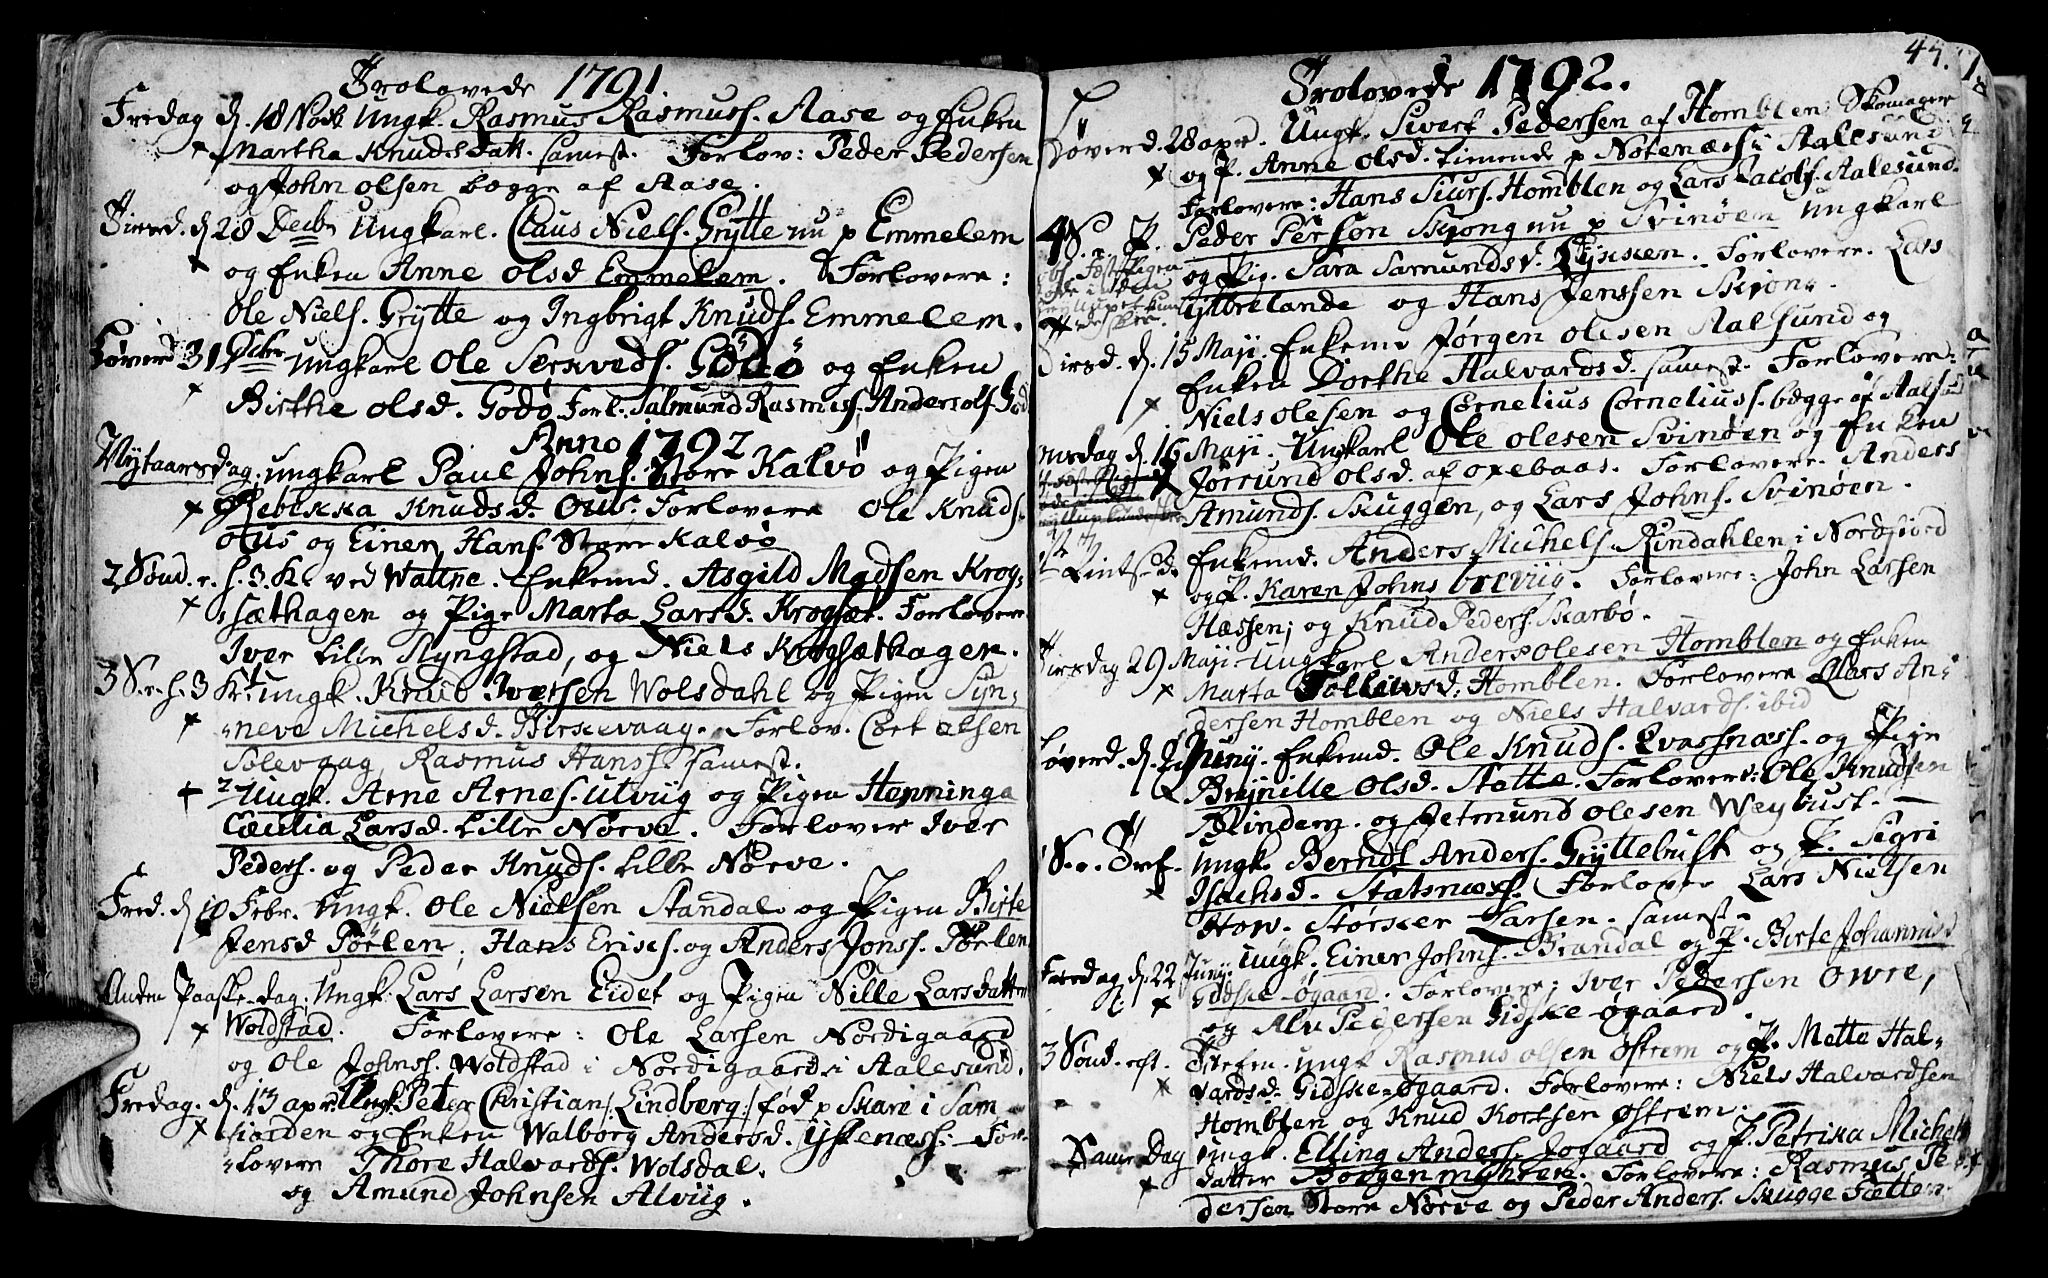 Trolovede 1791.
Fredag d. 18 Novb Ungk. Rasmus Rasmuss. Aase og Enken
Martha Knudsdatt. samest. Forlov: Peder Pedersen
og John Olsen begge af Aase.
Tirsd. d. 28 Decbr Ungkarl. Claus Niels. Grytte nu p Emmelem
og Enken Anne Olsd Emmelem. Forlovere:
Ole Niels. Grytte og Ingbrigt Knuds. Emmelem.
Løverd 31 Decbr Ungkarl Ole Serkveds. Godø og Enken
Birthe Olsd. Godø Forl. Salmund Rasmuss. Anders Ols. God
Anno 1792
Nytaarsdag. Ungkarl Paul Johns. Store Kalvø og Pigen
Rebekka Knudsd. Ous. Forlovere Ole Knuds.
Ous og Einer Hans. Store Kalvø
2 Sønd. e. H. 3 K. ved Vattne. Enkemd. Asgild Madsen Krog,,
,,sæthagen og Pige Marta Larsd. Krogsæt. Forlovere
Iver Lille Slyngstad, og Niels Krogsæthagen.
3 S. e. H. 3 Kr. Ungk. Knud Iversen Wolsdahl og Pigen Syn,,
,,neve Michelsd. Birkevaag. Forlov. Cort Olsen
Solevaag, Rasmus Hanss samest.
2 Ungk. Arne Arnes. Utviig og Pigen Henninga
Cæcilia Larsd. Lille Nørve. Forlover Iver
Peders. og Peder Knuds. Lille Nørve.
Fred. d 10 Febr. Ungk. Ole Nielsen Standal og Pigen Birte
Jensd Pørlen; Hans Erics. og Anders Jonss. Pørlen
Anden Paaske-dag. Ungk. Lars Larsen Eidet og Pigen Nille Larsdatter
Woldstad. Forlovere: Ole Larsen Nordigaard
og Ole Johnss. Woldstad i Nordigaard i Aalesund.
Fredag. d. 13 apr. Ungk. Peter Christian Lindberg /: fød p Skare i Sam
fiorden og Enken Walborg Andersd. Ystenæss: For,,
,,lovere Thore Halvards. Wolsdal.
og Amund Johnsen Alviig.
47.
Trolovede 1792.
Løverd. 28 apr. Ungk. Sivert Pedersen af Homblen Skomager
og P. Anne Olsd. tienende p Notenæss i Aalesund
Forlovere: Hans Siurs. Homblen og Lars Jacobs. Aalesund.
4 S. e. P. Peder Person Skong nu p Svinøen Ungkarl
og Pig. Sara Samundsd. Lyxken. Forlovere. Lars
Ytrelande og Hans Jenssen Skong.
Tirsd. d. 15 Maji. Enkemd Jørgen Olesen Aalsund og
Enken Dorthe Halvardsd. samest. Forlovere:
Niels Olesen og Cornelius Corneliuss. begge af Aalsund
Onsdag d. 16 Maji. Ungkarl Ole Olesen Svinøen og Enken
Jørrund Olsd. af Oxebaas. Forlovere. Anders
Amunds. Skuggen, og Lars Johns. Svinøen.
Enkemd. Anders Michels. Rindahlen i Nordfiord
og P. Karen Johns Breviig. Forlovere: John Larsen
Hæssen; og Knud Peders. Skarbø.
Tirsdag 29 Maji Ungkarl Anders Olesen Homblen og Enken
Marta Tollevsd. Homblen. Forlovere Lars An,,
dersen Homblen og Niels Halvards. ibid
Løverd. d. 2 Juny. Enkemd. Ole Knuds. Qvassnæss. og Pige
Brynille Olsd. Slatte. Forlovere: Ole Knudsen
Blindem. og Jetmund Olesen Weybust.
S. e. Tref. Ungk. Berndt Anders. Gryttebust og P. Segri
Isachsd. Slatsnæss. Forlover Lars Nielsen
How. Størker Larsen. samest.
Ungk. Einer Johns. Brandal og P. Birte Johannisd
Fredag d. 22 Juny.
Gidske Øgaard. Forlovere; Iver Pedersen Owre,
og Alv Pedersen Gidske Øgaard.
3 Sønd. e. Trefen. Ungk Rasmus Olsen Østrem og P. Mette Hal,,
vardsd. Gidske Øgaard. Forlovere: Niels Halvardsen
Homblen og Knud Kortsen Østrem.
Same Dag Ungk. Elling Anders. Øgaard og P. Petrika Michels
datter Borgenmyhren. Forlovere: Rasmus Pe
dersen Store Nørve og Peder Anders. Skugge Fætten.